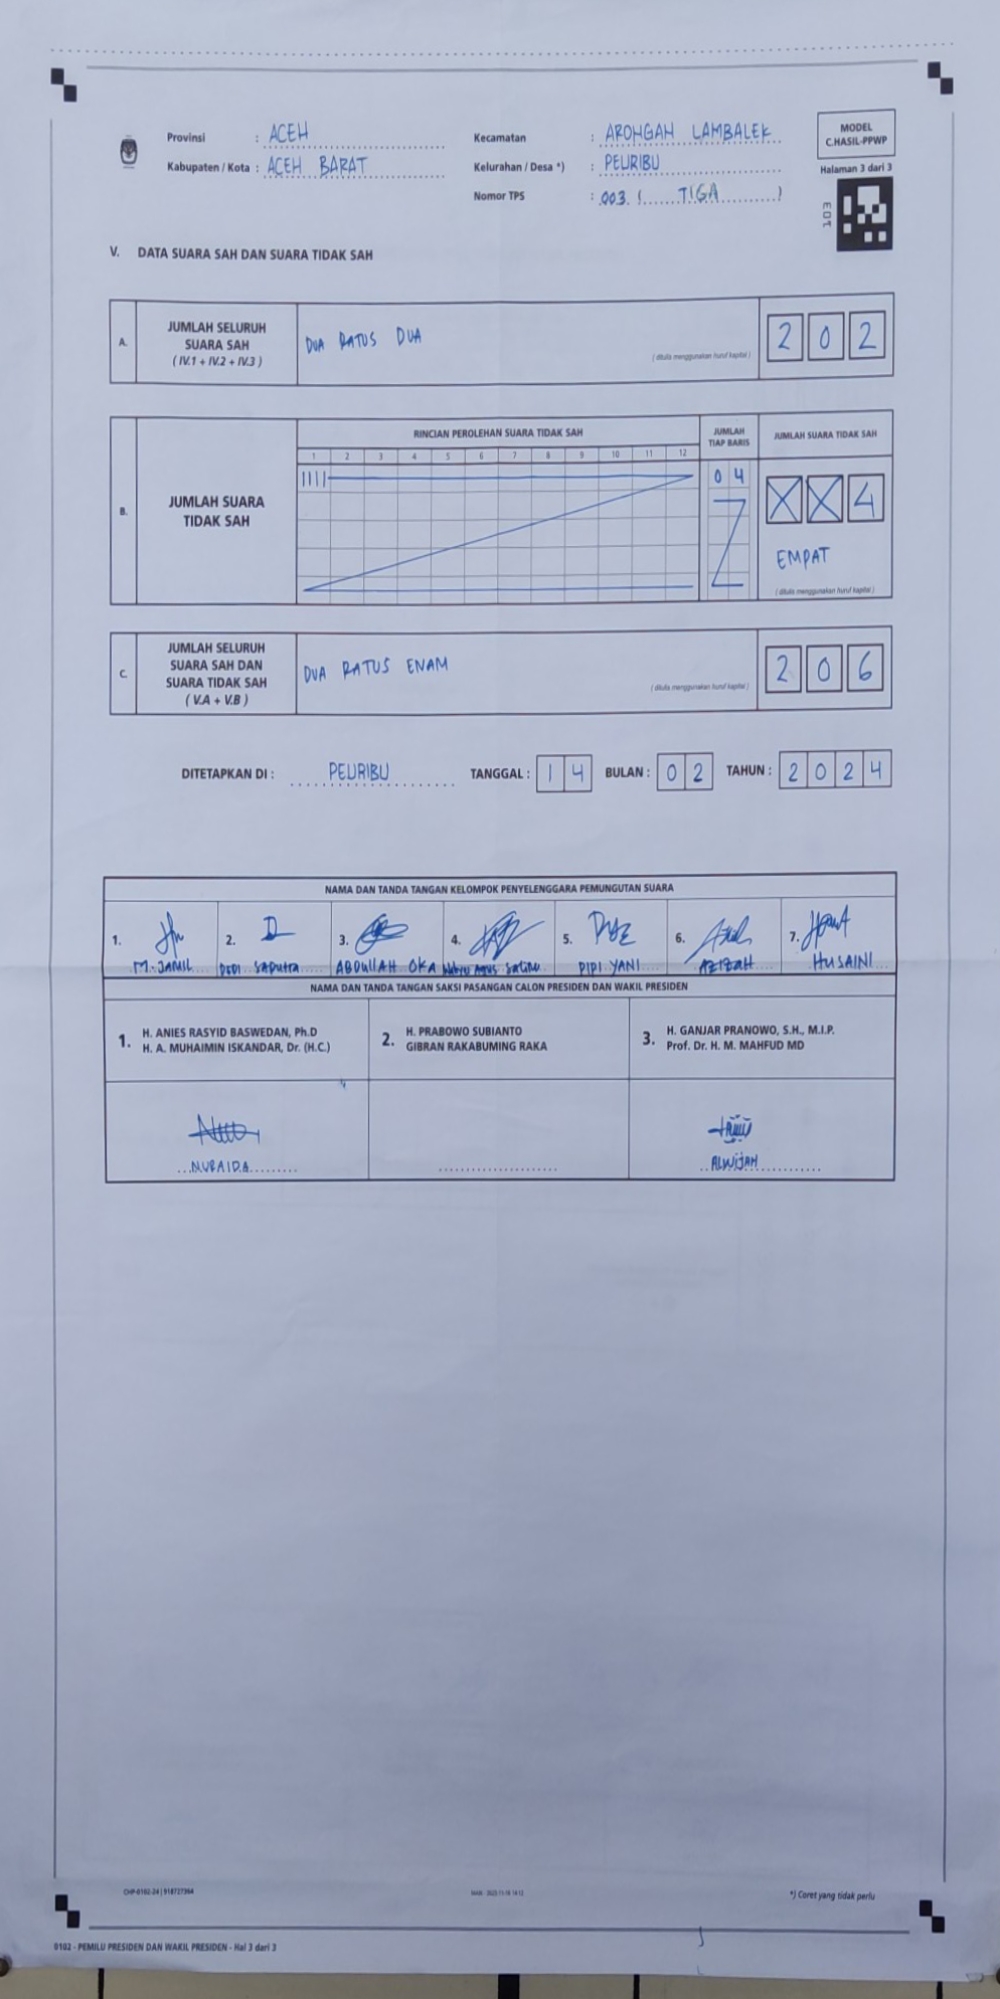 Provinsi : ACEH
Kabupaten / Kota : ACEH BARAT
Kecamatan : ARONGAN LAMBALEK
Kelurahan / Desa *) : PEURIBU
Nomor TPS : 003 (......TIGA..........)
MODEL
C.HASIL-PPWP
Halaman 3 dari 3
E01
V. DATA SUARA SAH DAN SUARA TIDAK SAH
A. JUMLAH SELURUH
SUARA SAH
( IV.1 + IV.2 + IV.3 )
DUA RATUS DUA
( ditulis menggunakan huruf kapital )
2 0 2
B. JUMLAH SUARA
TIDAK SAH
RINCIAN PEROLEHAN SUARA TIDAK SAH
1 2 3 4 5 6 7 8 9 10 11 12
JUMLAH
TIAP BARIS
0 4
JUMLAH SUARA TIDAK SAH
X X 4
EMPAT
( ditulis menggunakan huruf kapital )
C. JUMLAH SELURUH
SUARA SAH DAN
SUARA TIDAK SAH
( V.A + V.B )
DUA RATUS ENAM
( ditulis menggunakan huruf kapital )
2 0 6
DITETAPKAN DI : PEURIBU TANGGAL : 1 4 BULAN : 0 2 TAHUN : 2 0 2 4
NAMA DAN TANDA TANGAN KELOMPOK PENYELENGGARA PEMUNGUTAN SUARA
1. 2. 3. 4. 5. 6. 7.
M. JAMIL DEDI SAPUTRA ABDULLAH OKA PIPI YANI AZIZAH HUSAINI
NAMA DAN TANDA TANGAN SAKSI PASANGAN CALON PRESIDEN DAN WAKIL PRESIDEN
1. H. ANIES RASYID BASWEDAN, Ph.D
H. A. MUHAIMIN ISKANDAR, Dr. (H.C.)
2. H. PRABOWO SUBIANTO
GIBRAN RAKABUMING RAKA
3. H. GANJAR PRANOWO, S.H., M.I.P.
Prof. Dr. H. M. MAHFUD MD
NURAIDA
ALWIJAH
*) Coret yang tidak perlu
0102 - PEMILU PRESIDEN DAN WAKIL PRESIDEN - Hal 3 dari 3